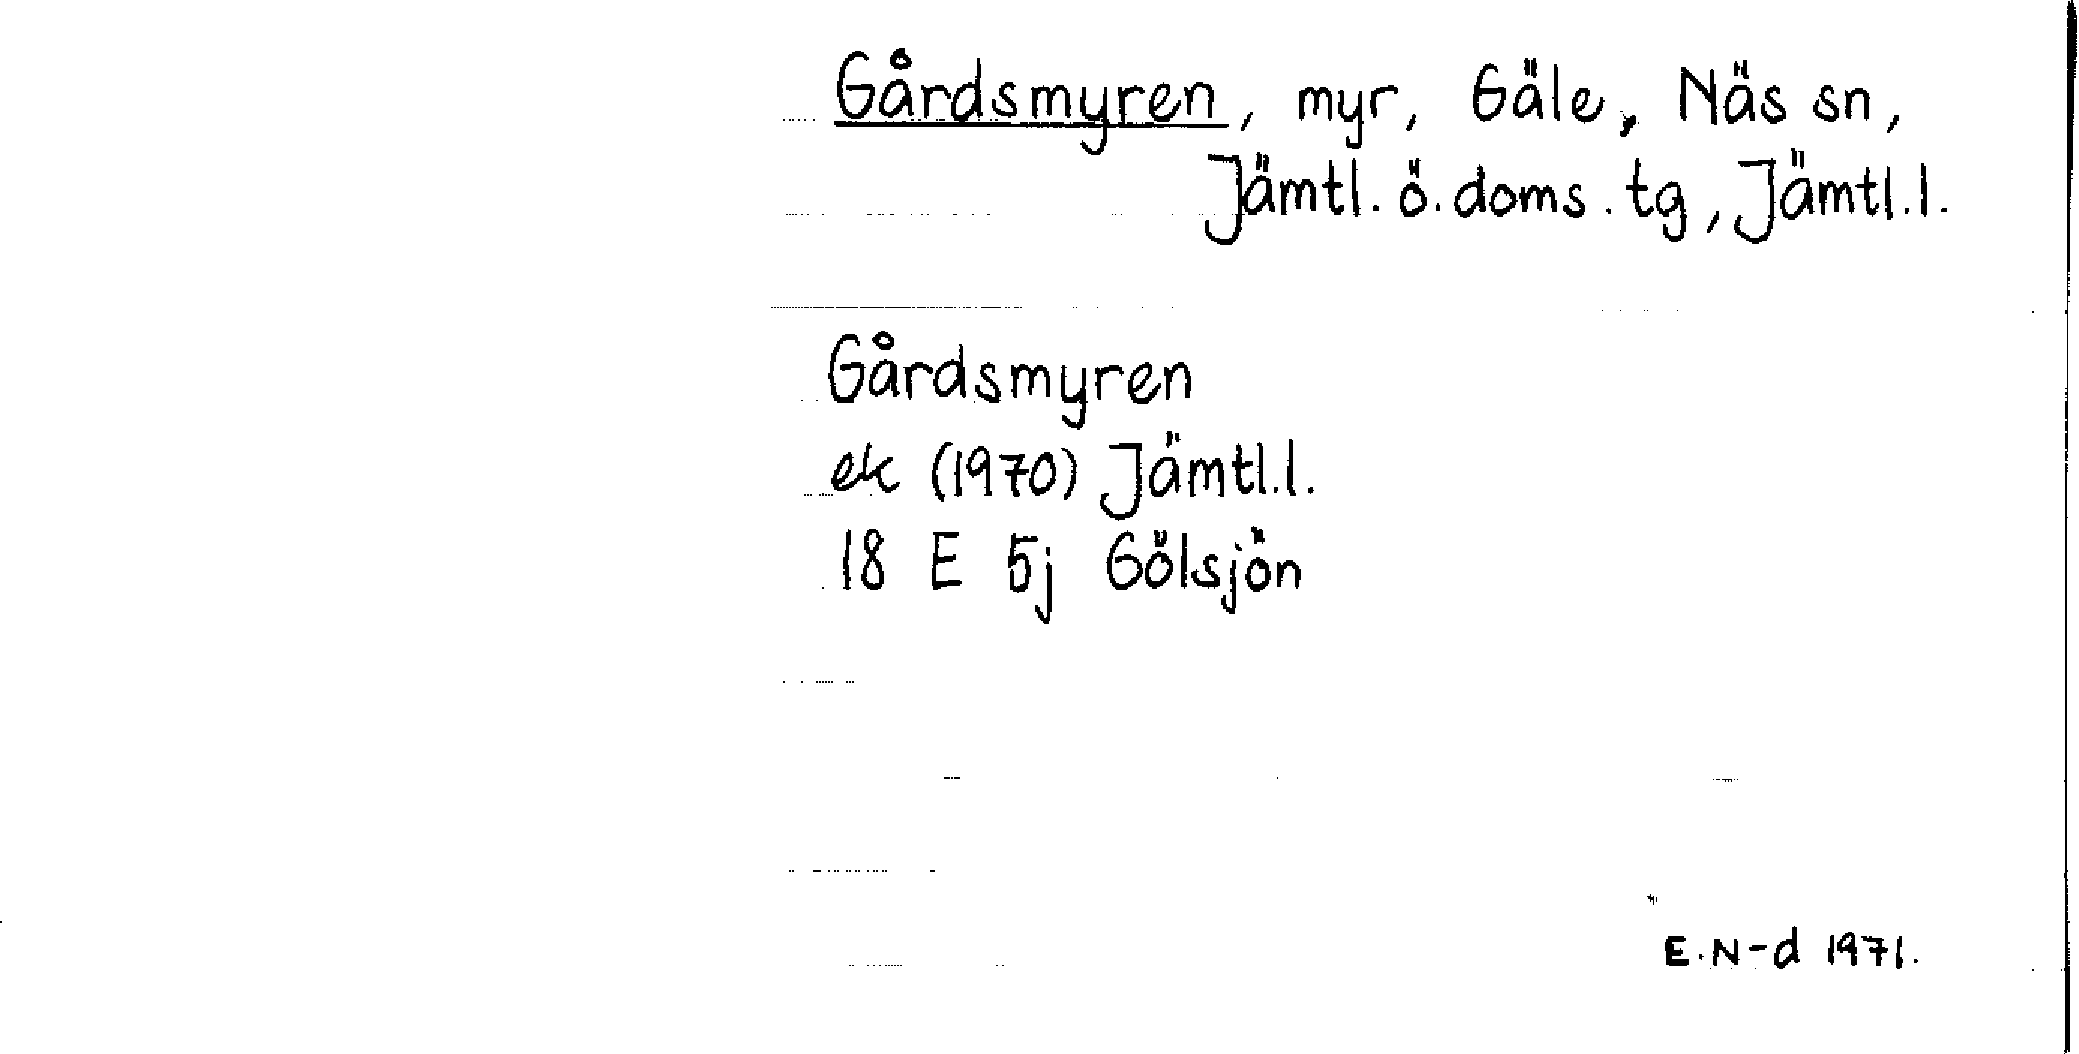 Gårdsmyren, myr, Gäle, Näs sn,
Jämtl. ö. doms. tg, Jämtl.l.
Gårdsmyren
ek (1970) Jämtl.l.
18 E 5j Gölsjön
E.N-d 1971.